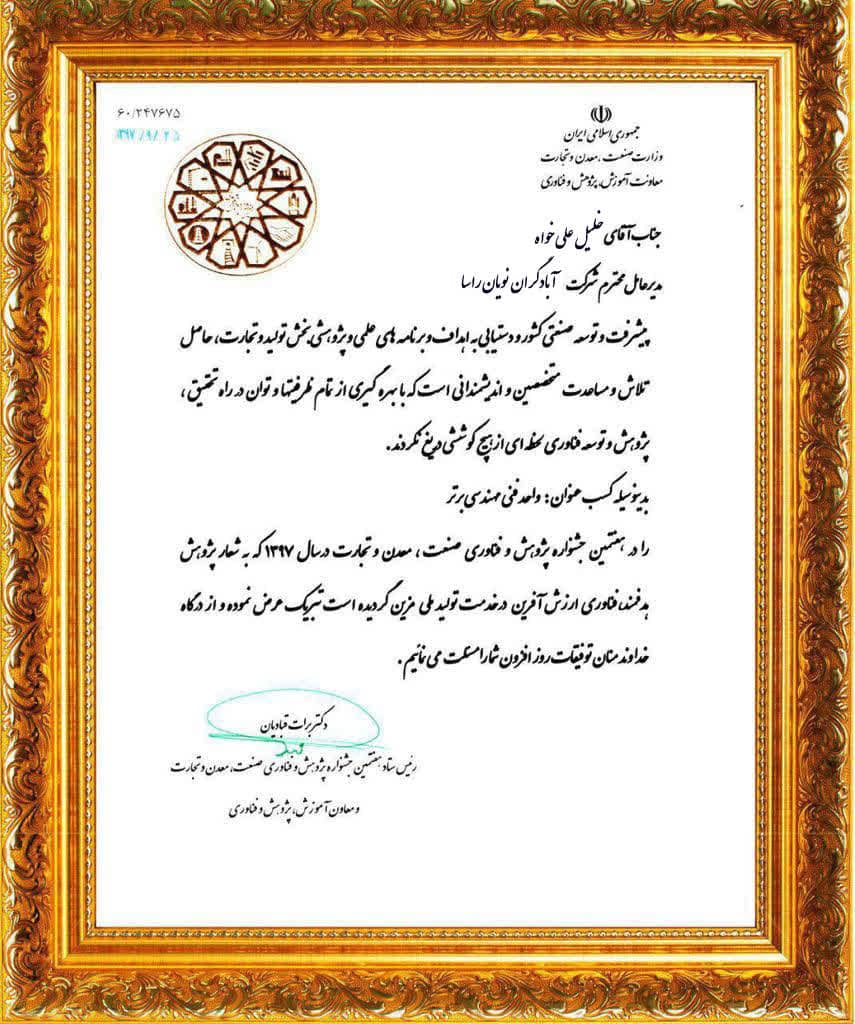 ۶۰/۲۴۷۶۷۵
۱۳۹۷/۹/۲۵
جمهوری اسلامی ایران
وزارت صنعت، معدن و تجارت
معاونت آموزش، پژوهش و فناوری
جناب آقای خلیل علی خواه
مدیرعامل محترم شرکت آبادگران نویان راسا
پیشرفت و توسعه صنعتی کشور و دستیابی به اهداف و برنامه های علمی و پژوهشی بخش تولید و تجارت، حاصل
تلاش و مساعدت متخصصین و اندیشمندانی است که با بهره گیری از تمام ظرفیتها و توان در راه تحقیق،
پژوهش و توسعه فناوری لحظه ای از هیچ کوششی دریغ نکردند.
بدینوسیله کسب عنوان: واحد فنی مهندسی برتر
را در هفتمین جشنواره پژوهش و فناوری صنعت، معدن و تجارت در سال ۱۳۹۷ که به شعار پژوهش
هدفمند، فناوری ارزش آفرین در خدمت تولید ملی مزین گردیده است تبریک عرض نموده و از درگاه
خداوند منان توفیقات روز افزون شما را مسئلت می نمائیم.
دکتر برات قبادیان
رئیس ستاد هفتمین جشنواره پژوهش و فناوری صنعت، معدن و تجارت
و معاون آموزش، پژوهش و فناوری